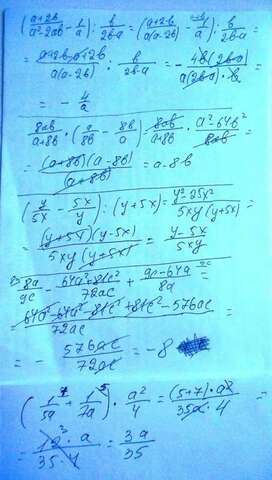 (a+2b/a²-2ab - 1/a) : b/2b-a = (a+2b/a(a-2b) - 1/a) : b/2b-a =
= a+2b-a+2b/a(a-2b) · b/2b-a = - 4b(2b-a)/a(2b-a)·b =
= - 4/a
8ab/a+8b · (a/8b - 8b/a) = 8ab/a+8b · a²-64b²/8ab =
= (a+8b)(a-8b)/(a+8b) = a-8b
(y/5x - 5x/y) : (y+5x) = y²-25x²/5xy(y+5x) =
= (y+5x)(y-5x)/5xy(y+5x) = y-5x/5xy
8a/9c - 64a²+81c²/72ac + 9c-64a/8a =
64a²-64a²-81c²+81c²-576ac/72ac =
= - 576ac/72ac = -8
(1/5a + 1/7a) · a²/4 = (5+7)·a²/35a·4 =
= 12·a/35·4 = 3a/35